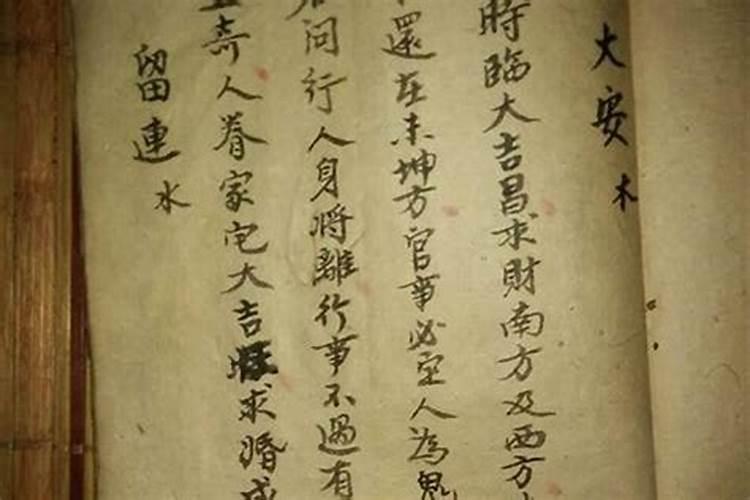 大安 木
時臨大吉昌求財南方及西方
還在未坤方官事必空人為鬼
問行人身將離行事不遇有
奇人眷家宅大吉求婚成
留連 水